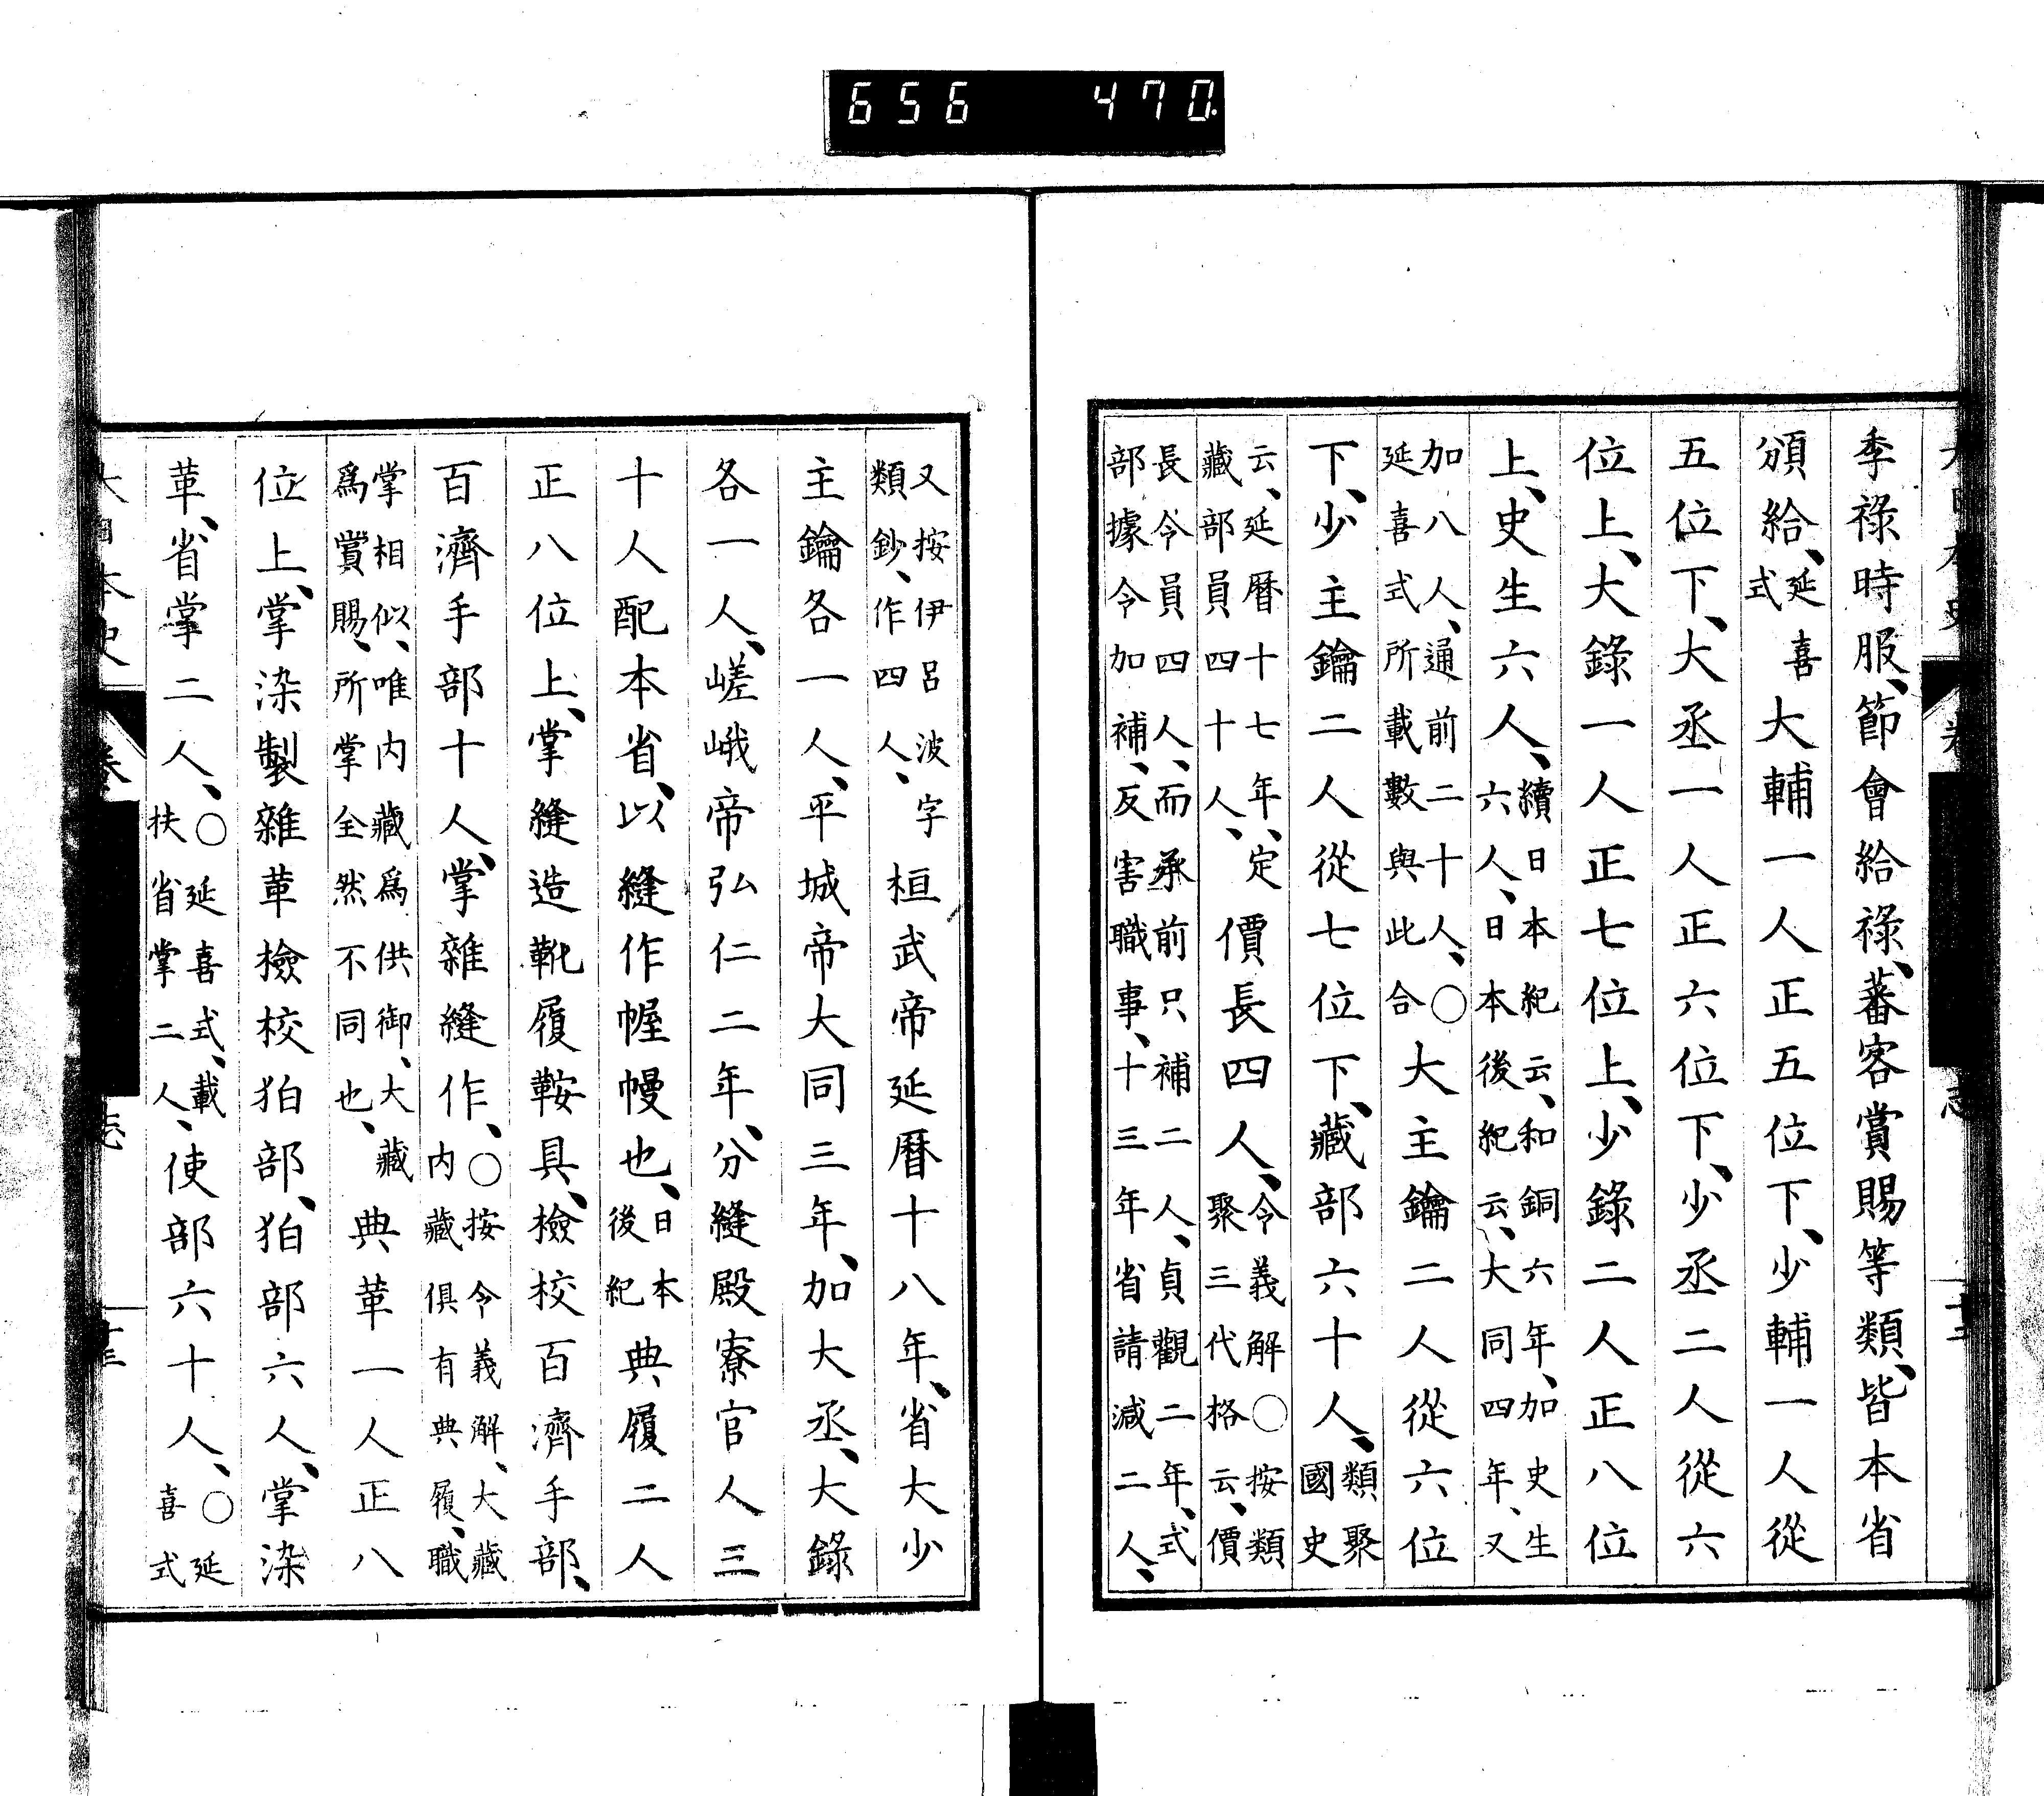 656 470
季祿時服、節會給祿、蕃客賞賜等類、皆本省
頒給、延喜式大輔一人正五位下、少輔一人從
五位下、大丞一人正六位下、少丞二人從六
位上、大錄一人正七位上、少錄二人正八位
上、史生六人、續日本紀云、和銅六年、加史生六人、日本後紀云、大同四年、又
加八人、通前二十人、○延喜式所載數與此合大主鑰二人從六位
下、少主鑰二人從七位下、藏部六十人、類聚國史
云、延曆十七年、定藏部員四十人、價長四人、令義解○按類聚三代格云、價
長令員四人、而承前只補二人、貞觀二年、式部據令加補、反害職事、十三年省請減二人、
又按伊呂波字類鈔、作四人、桓武帝延曆十八年、省大少
主鑰各一人、平城帝大同三年、加大丞、大錄
各一人、嵯峨帝弘仁二年、分縫殿寮官人三
十人配本省、以縫作幄幔也、日本後紀典履二人
正八位上、掌縫造靴履鞍具、檢校百濟手部、
百濟手部十人、掌雜縫作、○按令義解、大藏內藏俱有典履、職
掌相似、唯內藏爲供御、大藏爲賞賜、所掌全然不同也、典革一人正八
位上、掌染製雜革檢校狛部、狛部六人、掌染
革、省掌二人、○延喜式、載扶省掌二人、使部六十人、○延喜式